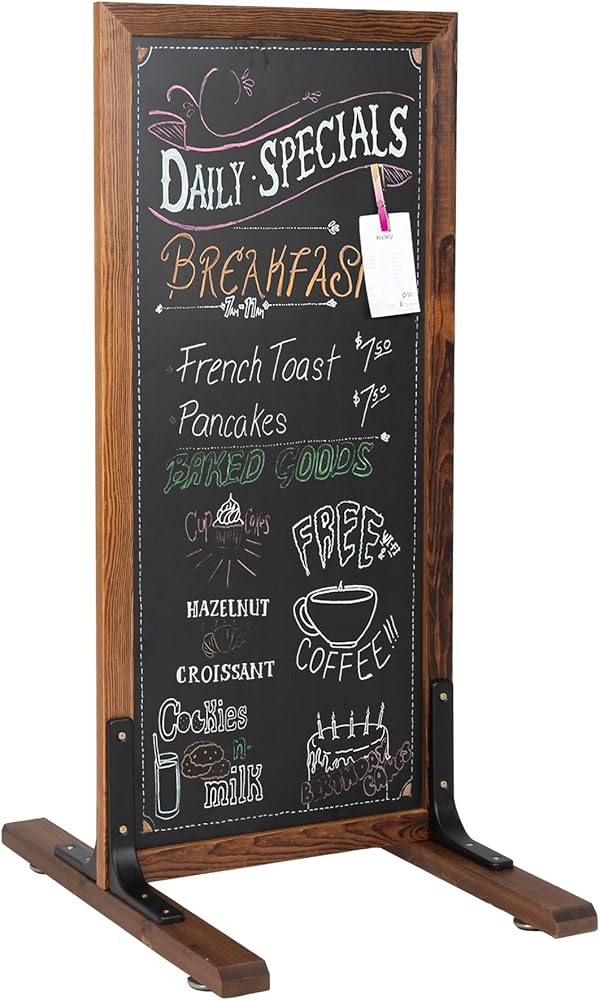 DAILY · SPECIALS
MENU
BREAKFAS
7AM-11AM
French Toast $7.50
Pancakes $7.50
BAKED GOODS
Cup Cakes
FREE
WI-FI
&
HAZELNUT
CROISSANT
COFFEE!!!
Cookies
n.
milk
BIRTHDAY
CAKES